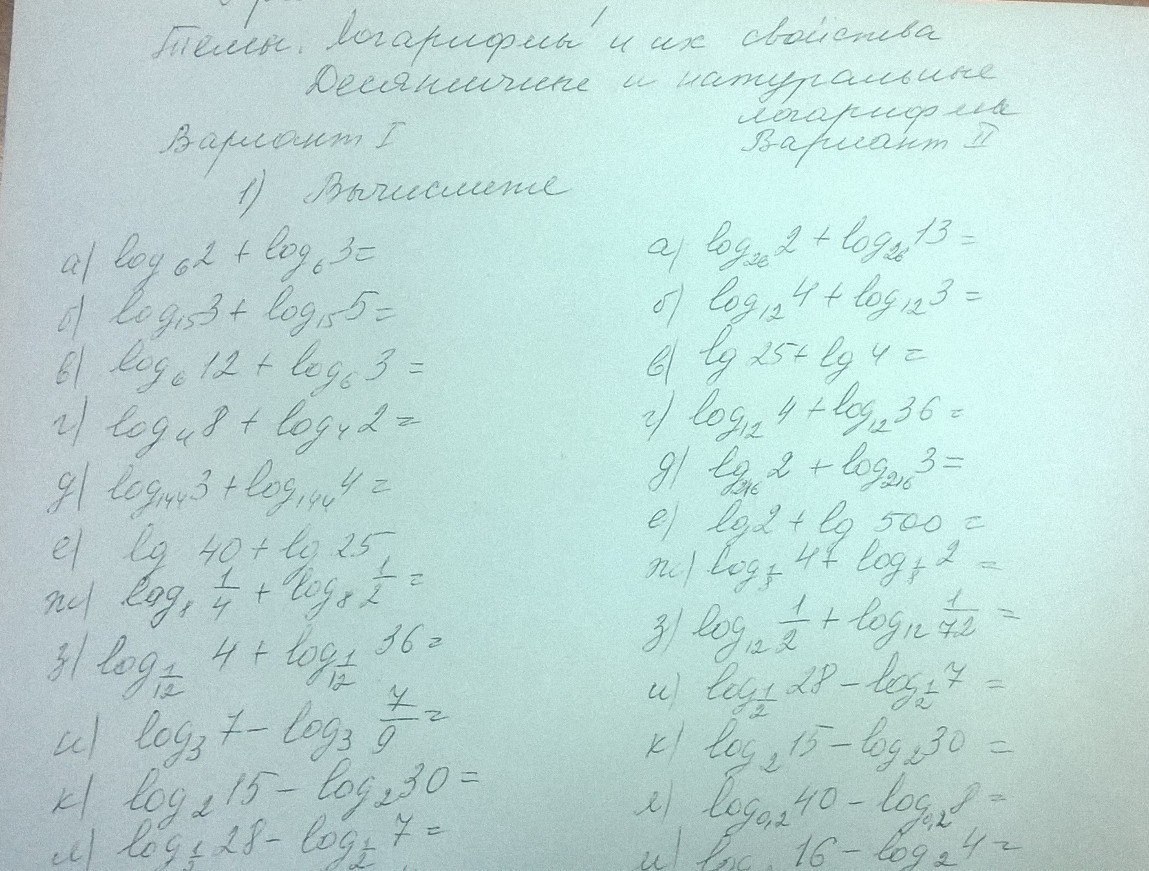 Темы: Логарифмы и их свойства
Десятичные и натуральные
логарифмы
Вариант I
Вариант II
1) Вычислите
а) log₆2 + log₆3=
б) log₁₅3 + log₁₅5=
в) log₆12 + log₆3 =
г) log₄8 + log₄2 =
д) log₁₄₄3 + log₁₄₄4 =
е) lg 40 + lg 25
ж) log₈ 1/4 + log₈ 1/2 =
з) log_{1/12} 4 + log_{1/12} 36=
и) log₃7 - log₃ 7/9 =
к) log₂15 - log₂30 =
л) log_{1/2} 28 - log_{1/2} 7=
а) log₂₆2 + log₂₆13=
б) log₁₂4 + log₁₂3 =
в) lg 25 + lg 4 =
г) log₁₂4 + log₁₂36=
д) log₂₁₆2 + log₂₁₆3=
е) lg2 + lg 500 =
ж) log_{1/8} 4 + log_{1/8} 2 =
з) log₁₂ 1/2 + log₁₂ 1/72 =
и) log_{1/2} 28 - log_{1/2} 7 =
к) log₂15 - log₂30 =
л) log₀,₂40 - log₀,₂8=
16 - log₂4=